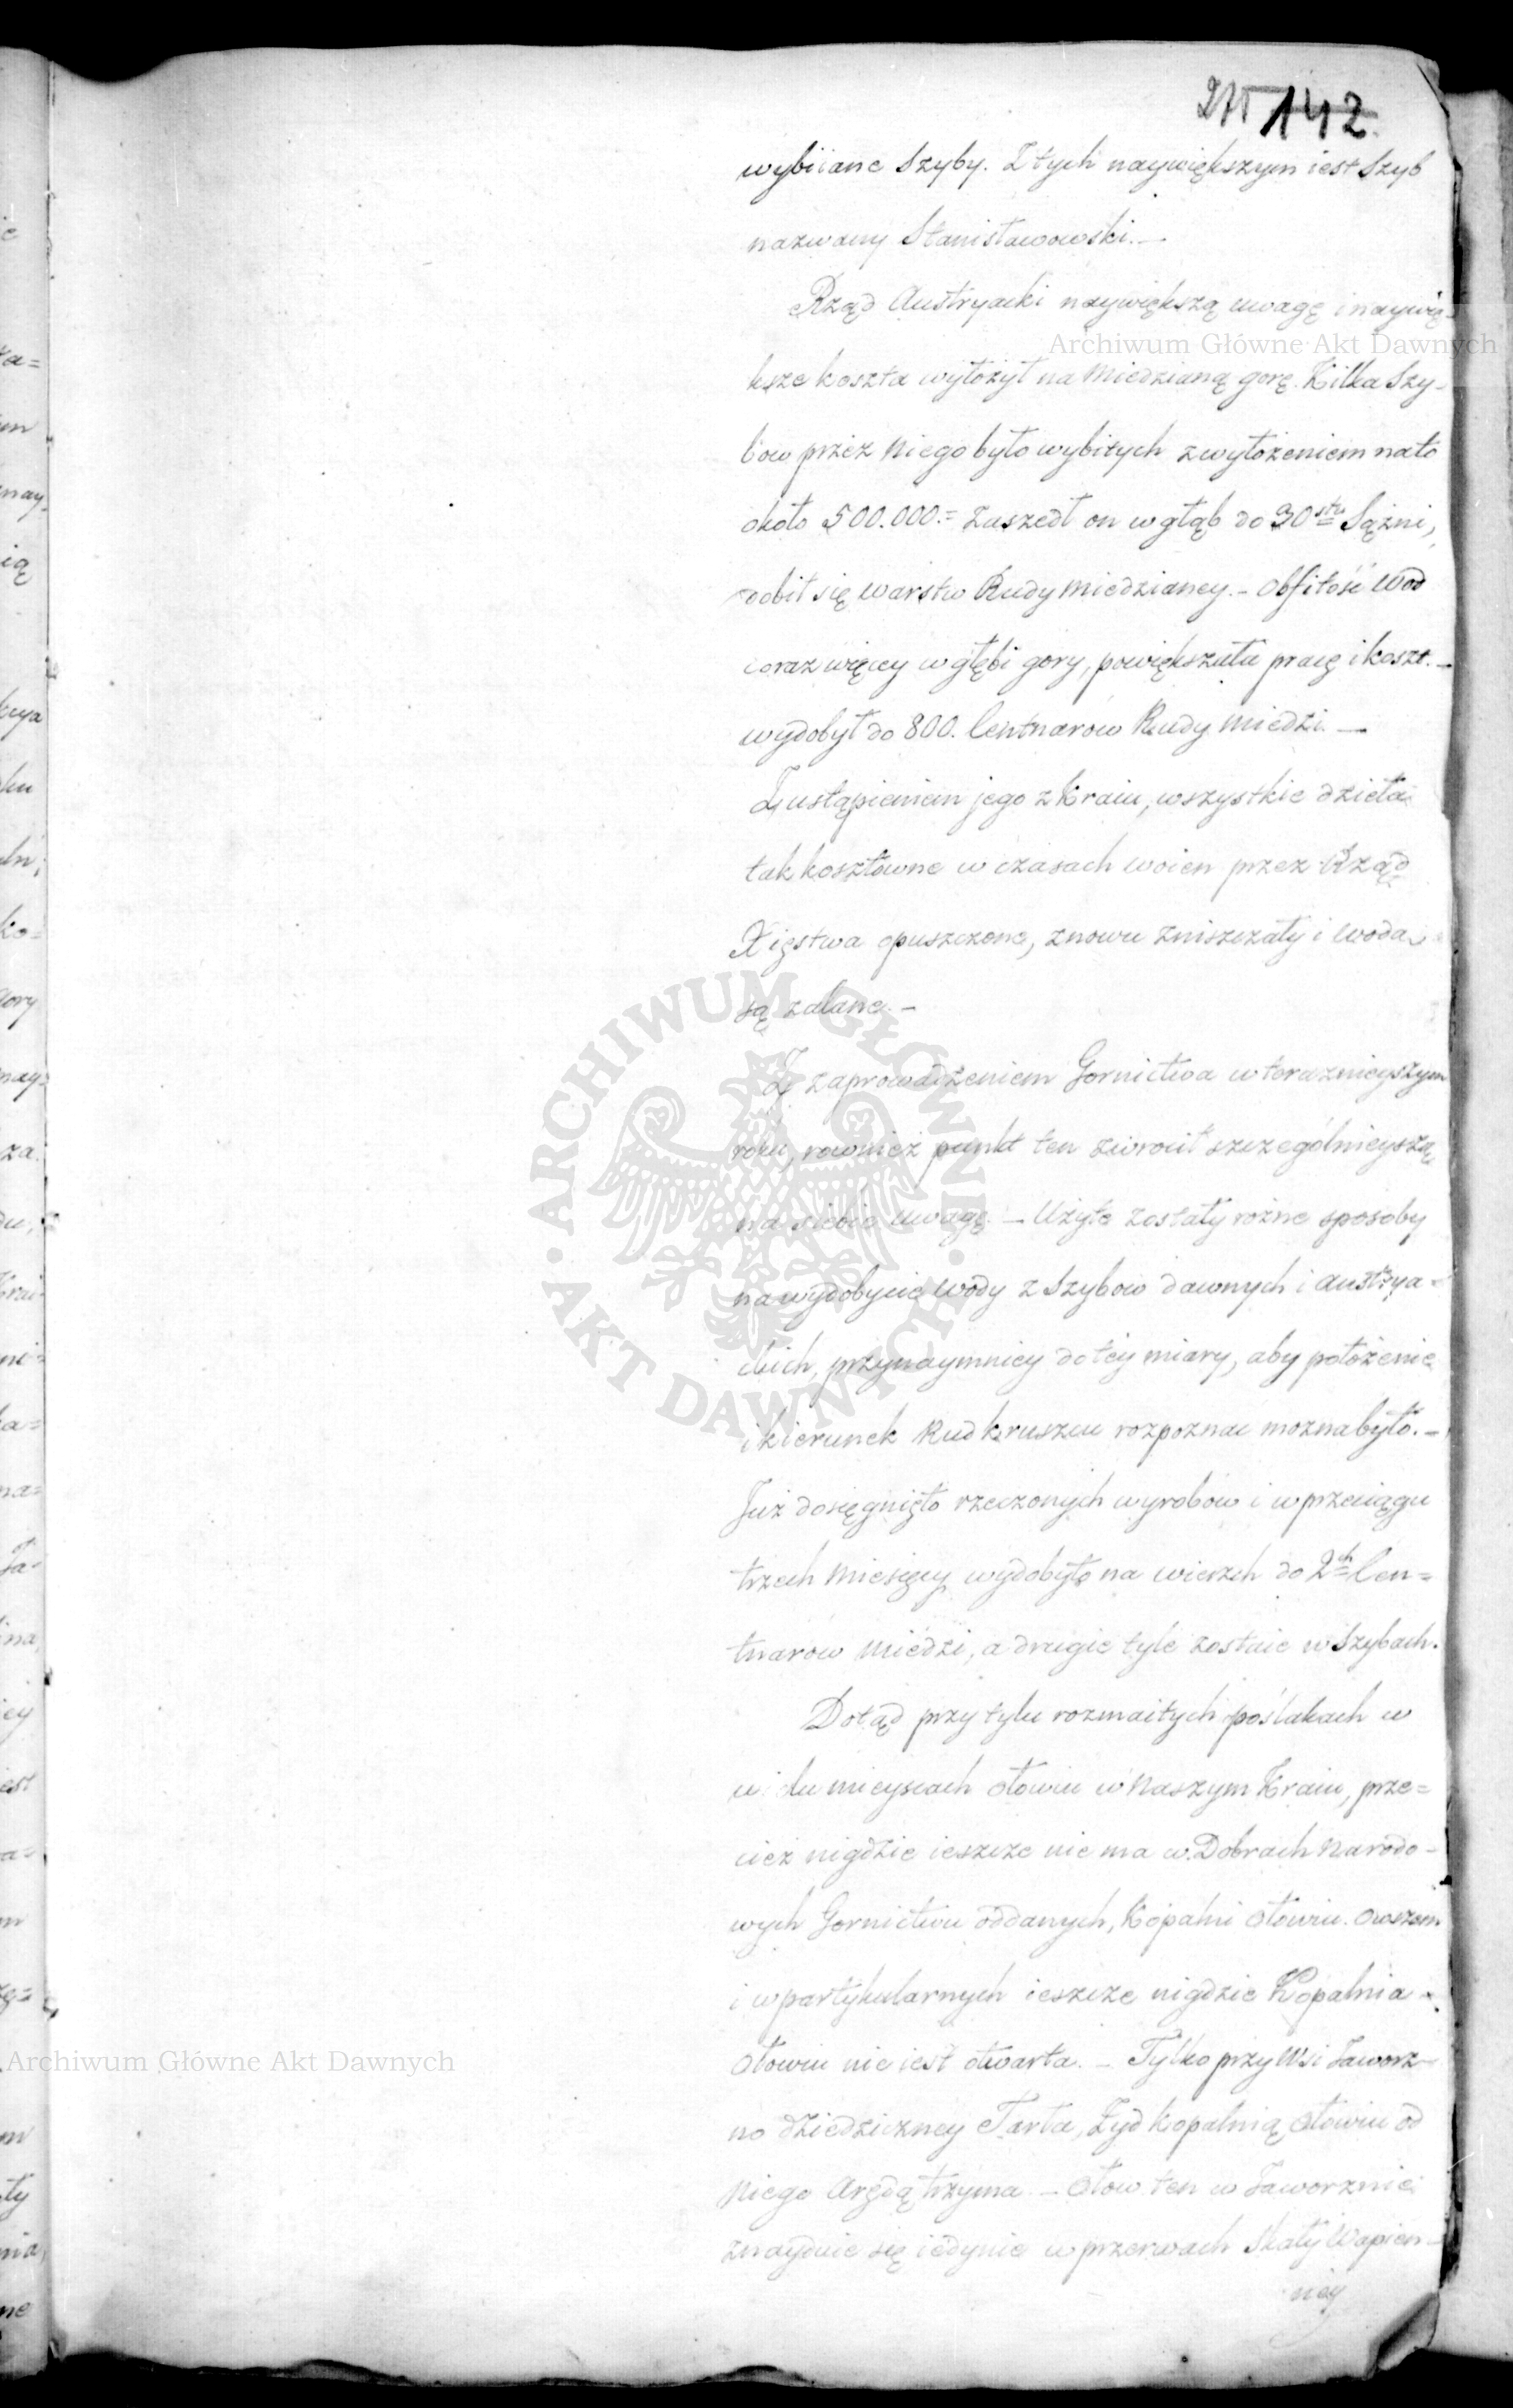 142.
wybiiane Szyby. Z tych naywiększym iest Szyb
nazwany Stanisławowski. —
Rząd Austryacki naywiększą uwagę i naywię-
ksze koszta wyłożył na Miedzianą gorę. Kilka Szy-
bow przez Niego było wybitych z wyłożeniem na to
około 500.000.= Zaszedł on w głąb do 30stu Sążni,
dobił się warstw Rudy Miedzianey. - Obfitość Wod
coraz więcy w głębi gory, powiększała pracę i koszt. -
wydobył do 800. Centnarow Rudy Miedzi. —
Z ustąpieniem jego z Kraiu, wszystkie dzieła
tak kosztowne w czasach woien przez Rząd
Xięstwa opuszczone, znowu zniszczały i wodą
są zalane. -
Z zaprowadzeniem Gornictwa w teraznieyszym
roku, rownież punkt ten zwrocił szczególnieyszą
na siebie uwagę. - Użyte zostały rożne sposoby
na wydobycie Wody z Szybow dawnych i austrya-
ckich, przynaymniey do téy miary, aby położenie
i kierunek Rud kruszcu rozpoznać można było. -
Już dosięgnięto rzeczonych wyrobow i w przeciągu
trzech Miesięcy wydobyto na wierzch do 2ch Cen=
tnarow Miedzi, a drugie tyle zostaie w Szybach.
Dotąd przy tylu rozmaitych poślakach w
wielu mieyscach Ołowiu w Naszym Kraiu, prze=
cież nigdzie ieszcze nie ma w Dobrach Narodo-
wych Gornictwu oddanych, Kopalni Ołowiu. Owszem
i w partykularnych ieszcze nigdzie Kopalnia
Ołowiu nie iest otwarta. - Tylko przy Wsi Jaworz-
no dziedziczney Tarła, Żyd Kopalnią Ołowiu od
Niego Arędą trzyma. - Ołow ten w Jaworznie
znayduie się iedynie w przerwach Skały Wapien-
ney
Archiwum Główne Akt Dawnych
ARCHIWUM GŁÓWNE · AKT DAWNYCH ·
Archiwum Główne Akt Dawnych